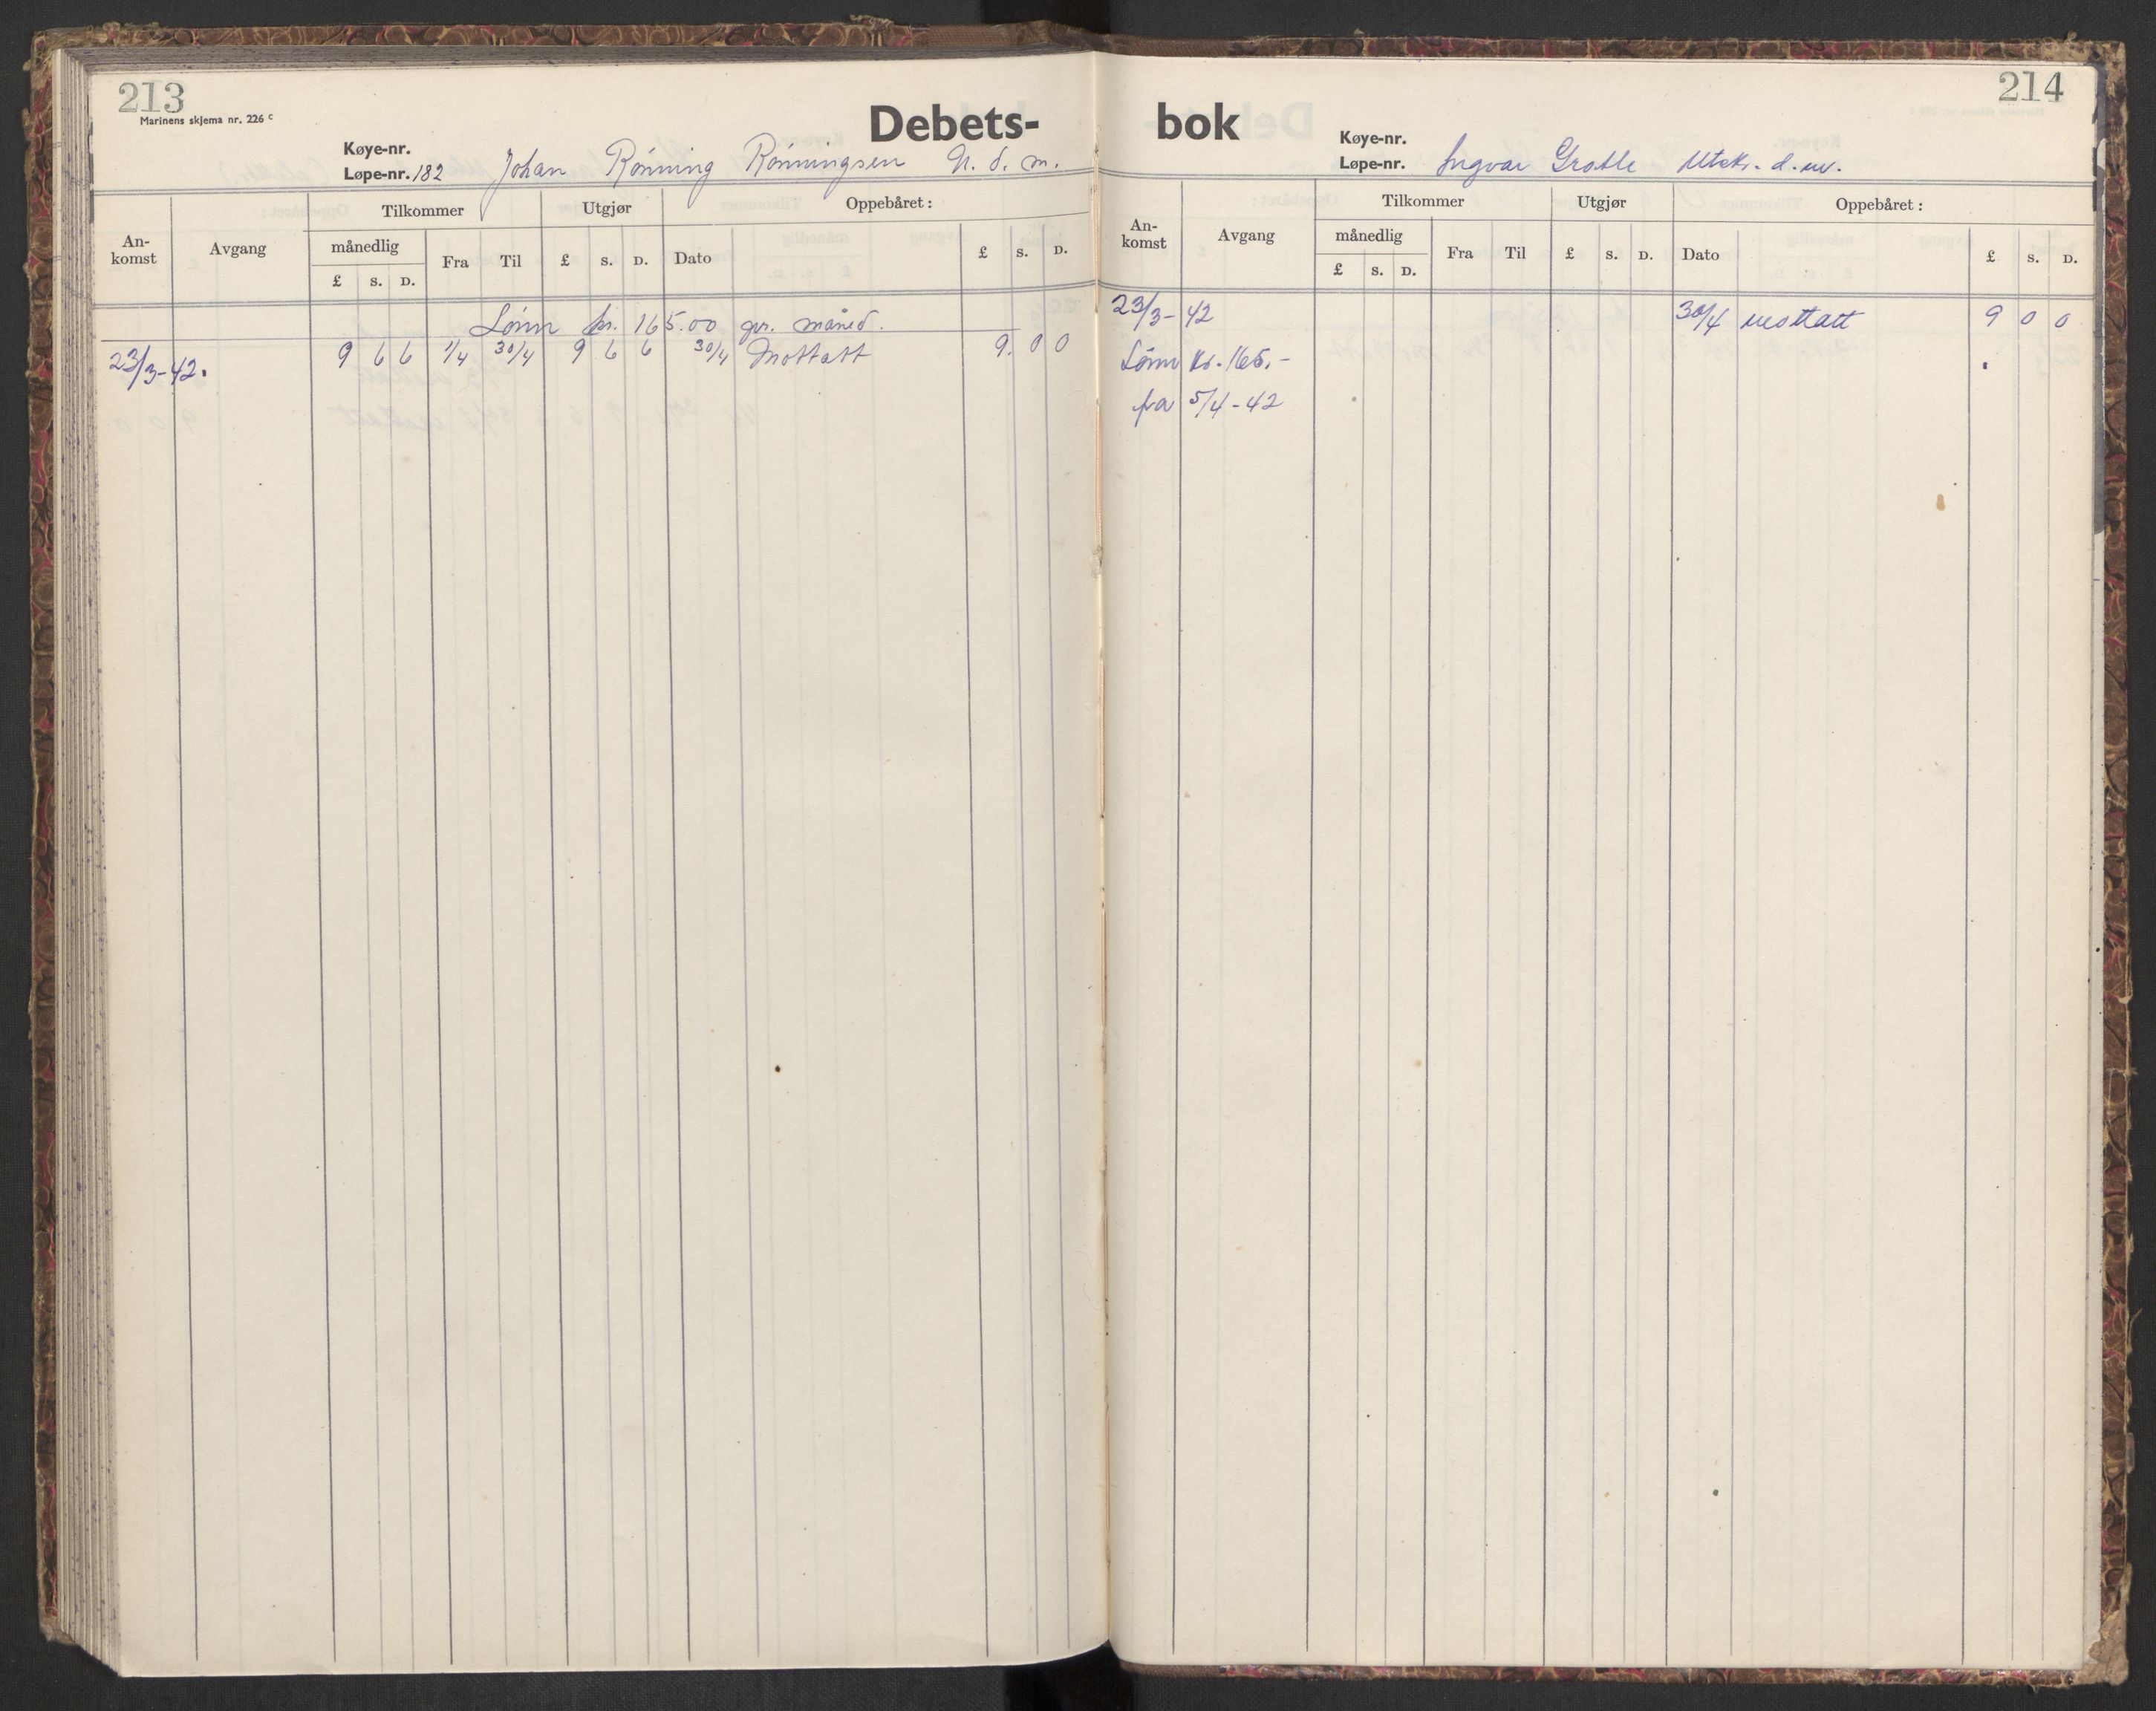 213
Marinens skjema nr. 226 c
Debets-
Køye-nr.
Løpe-nr. 182 Johan Rønning Rønningsen U. d. m.
An-komst Avgang Tilkommer Utgjør Oppebåret :
månedlig Fra Til £ s. D. Dato £ s. D.
£ s. D.
Lønn kr. 165.00 pr. måned.
23/3-42. 9 6 6 1/4 30/4 9 6 6 30/4 Mottatt 9. 0 0
214
bok
Køye-nr.
Løpe-nr. Ingvar Grotle Utskr. d. m.
An-komst Avgang Tilkommer Utgjør Oppebåret :
månedlig Fra Til £ s. D. Dato £ s. D.
£ s. D.
23/3-42 30/4 mottatt 9 0 0
Lønn kr. 165.-
fra 5/4-42